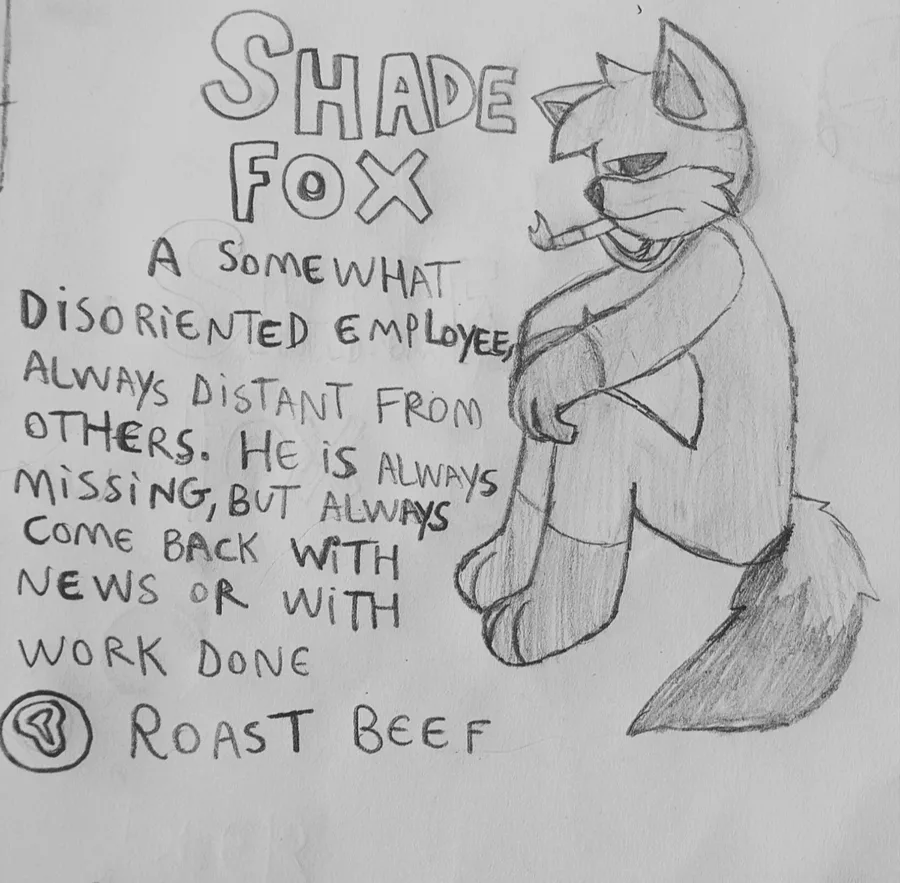 SHADE
FOX
A SOMEWHAT
DISORIENTED EMPLOYEE,
ALWAYS DISTANT FROM
OTHERS. HE IS ALWAYS
MISSING, BUT ALWAYS
COME BACK WITH
NEWS OR WITH
WORK DONE
ROAST BEEF